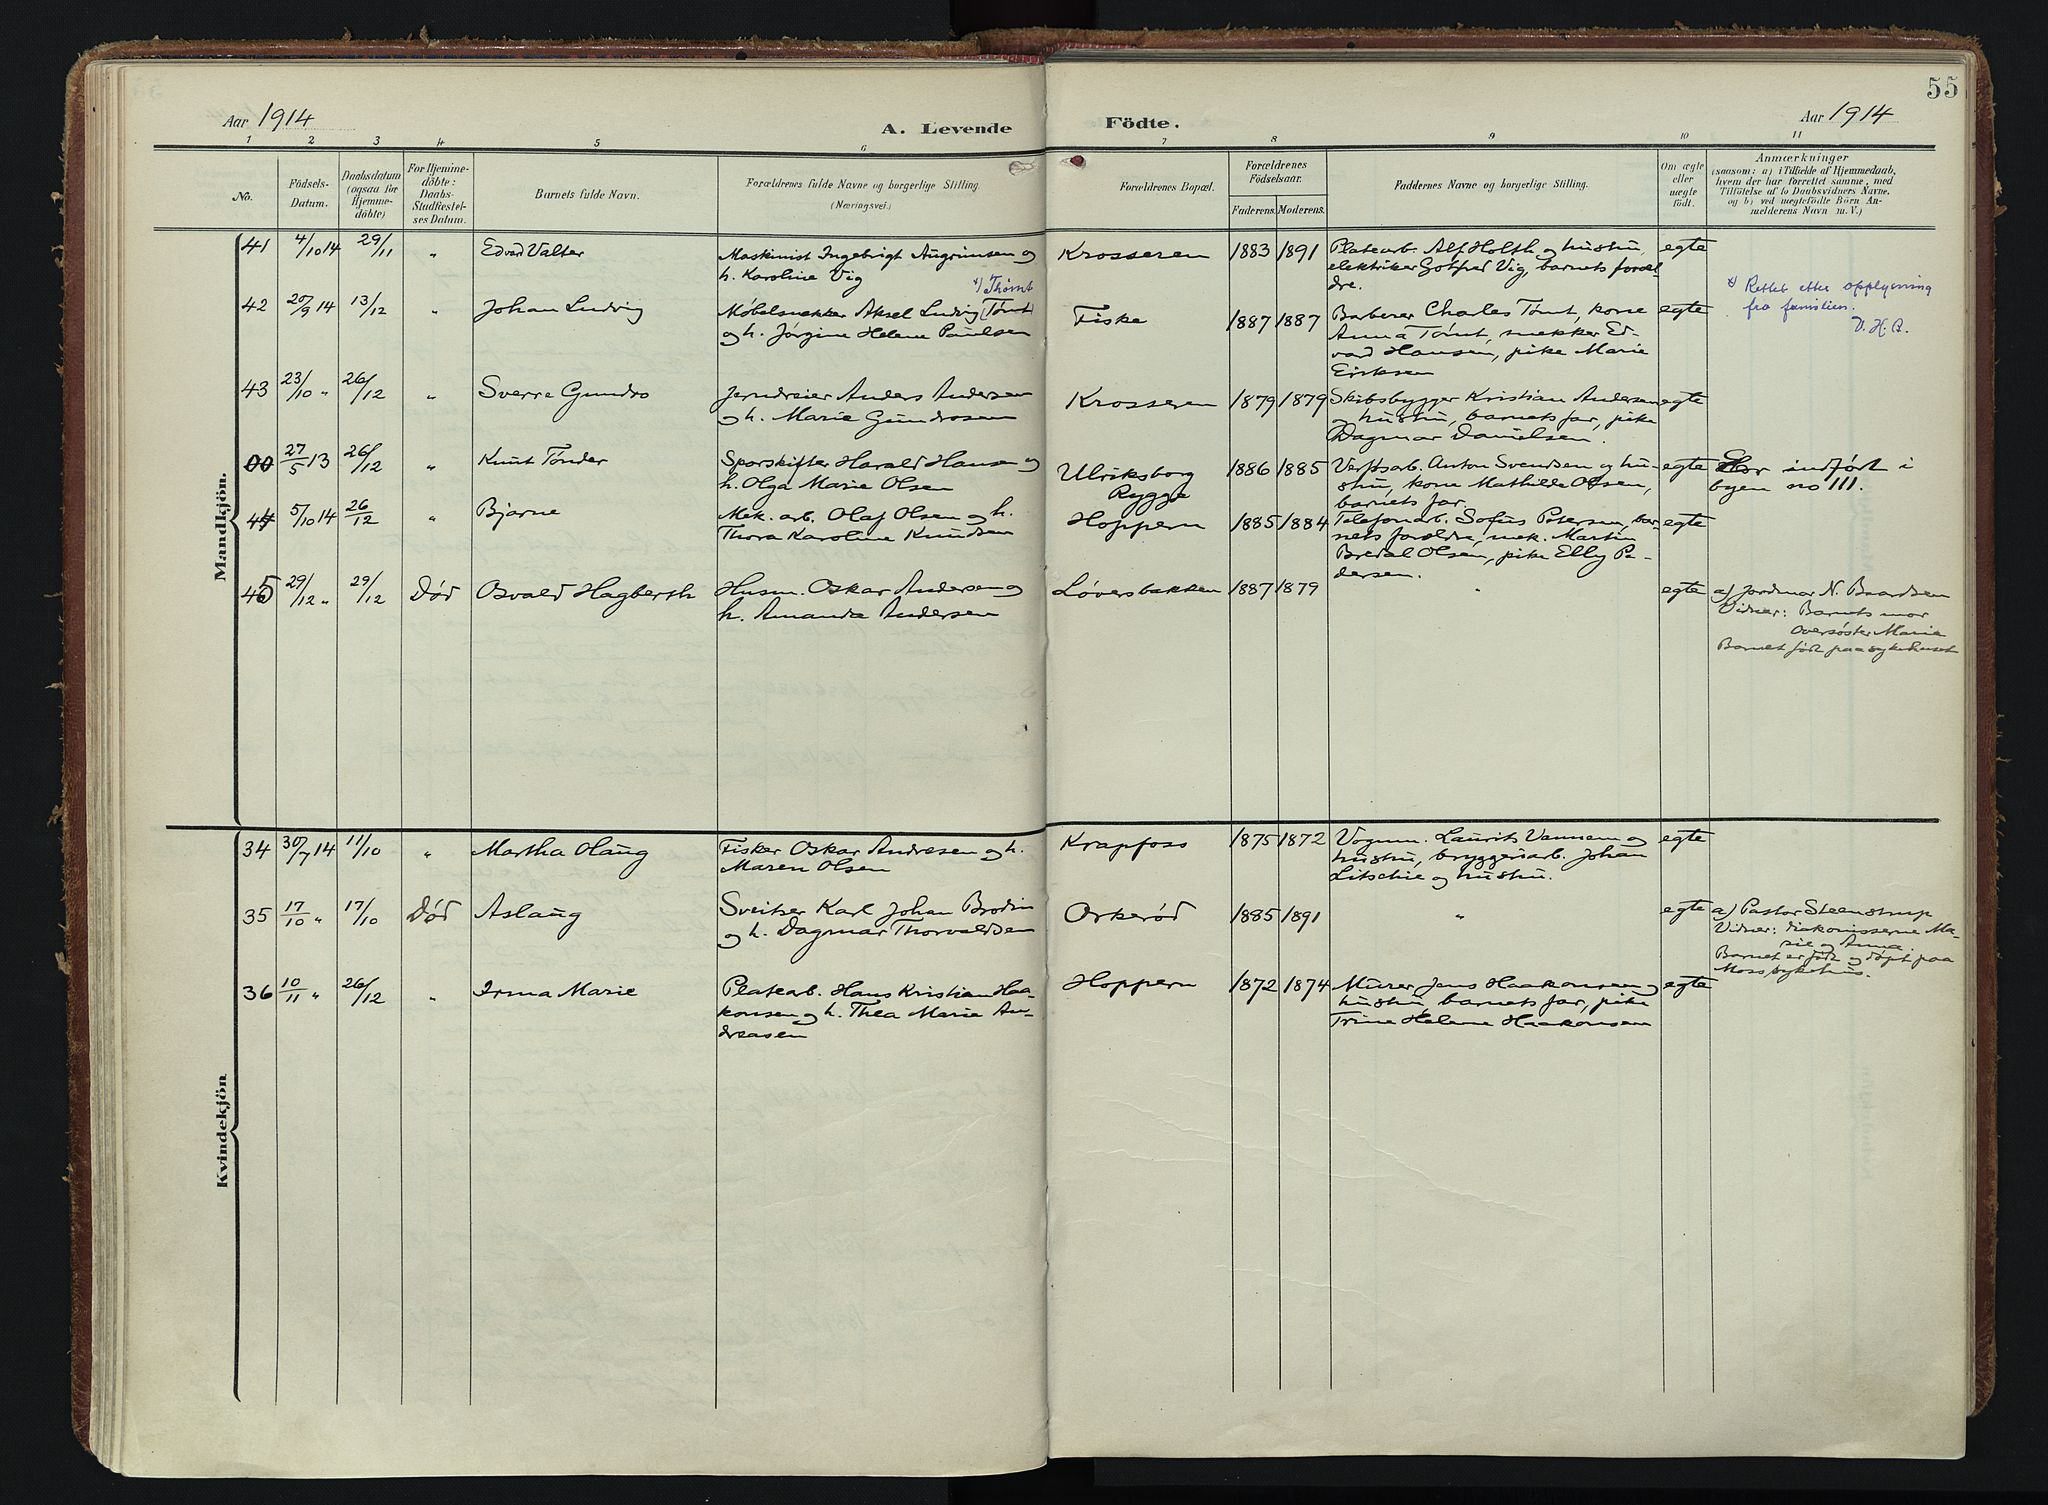 55
Aar 1914
A. Levende Födte.
Aar 1914
1 2 3 4 5 6 7 8 9 10 11
No.
Födsels-
Datum.
Daabsdatum
(ogsaa for
Hjemme-
döbte)
For Hjemme-
döbte:
Daabs-
Stadfæstel-
ses Datum.
Barnets fulde Navn.
Forældrenes fulde Navne og borgerlige Stilling.
(Næringsvei.)
Forældrenes Bopæl.
Forældrenes
Födselsaar.
Faderens. Moderens.
Faddernes Navne og borgerlige Stilling.
Om ægte
eller
uægte
födt.
Anmærkninger
(saasom: a) i Tilfælde af Hjemmedaab,
hvem der har forrettet samme, med
Tilföielse af to Daabsvidners Navne,
og b) ved uægtefödte Börn An-
melderens Navn m. V.)
Mandkjön.
41 4/10 14 29/11 " Edvard Valter
Maskinist Ingebrigt Augrimsen og
h. Karoline Vig
Krosseren 1883 1891
Platearb. Alf Holth og hustru,
elektriker Gotfred Vig, barnets foræl-
dre.
egte
x) Thømt
42 20/9 14 13/12 " Johan Ludvig
Møbelsnekker Aksel Ludvig Tømt
og h. Jørgine Helene Paulsen
Fiske 1887 1887
Barberer Charles Tømt, kone
Anna Tømt, snekker Ed-
vard Hansen, pike Marie
Eriksen
egte
x) Rettet etter opplysning
fra familien.
43 23/10 " 26/12 " Sverre Gundro
Jerndreier Anders Andersen
og h. Marie Gundrosen
Krosseren 1879 1879
Skibsbygger Kristian Andersen
og hustru, barnets far, pike
Dagmar Danielsen.
egte
00 27/5 13 26/12 " Knut Tønder
Sporskifter Harald Hansen og
h. Olga Marie Olsen
Ulriksborg
Rygge
1886 1885
Verftsarb. Anton Svendsen og hu-
stru, kone Mathilde Olsen,
barnets far.
egte
indført i
byen no 111.
44 5/10 14 26/12 " Bjarne
Mek. arb. Olaf Olsen og h.
Thora Karoline Knudsen
Hoppern 1885 1884
Telefonarb. Sofus Petersen, bar-
nets forældre, mek. Martin
Bredal Olsen, pike Elly Pe-
dersen.
egte
45 29/12 " 29/12 Død Osvald Hagberth
Husm. Oskar Andersen og
h. Amanda Andersen
Løversbakken 1887 1879
"
egte
a) Jordmor N. Baardsen
Vidner: Barnets mor
Oversøster Marie
Barnet født paa sykehuset
Kvindekjön
34 30/7 14 11/10 " Martha Olaug
Fisker Oskar Andresen og h.
Maren Olsen
Krapfoss 1875 1872
Vognm. Laurits Vannem og
hustru, bryggeriarb. Johan
Litschie og hustru.
egte
35 17/10 " 17/10 Død Aslaug
Sveitser Karl Johan Brodin
og h. Dagmar Thorvaldsen
Orkerød 1885 1891
"
egte
a) Pastor Steenstrup
Vidner: diakonisserne Ma-
rie og Anna.
Barnet er født og døpt paa
Moss sykehus.
36 10/11 " 26/12 " Irma Marie
Platearb. Hans Kristian Haa-
konsen og h. Thea Marie An-
dreasen
Hoppern 1872 1874
Murer Jens Haakonsen og
hustru, barnets far, pike
Trine Helene Haakonsen
egte